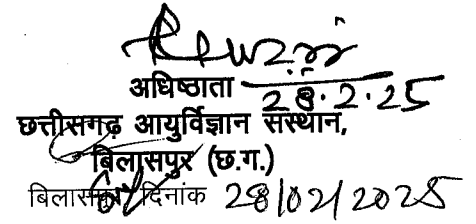 अधिष्ठाता 28.2.25
छत्तीसगढ़ आयुर्विज्ञान संस्थान,
बिलासपुर (छ.ग.)
बिलासपुर, दिनांक 28/02/2025